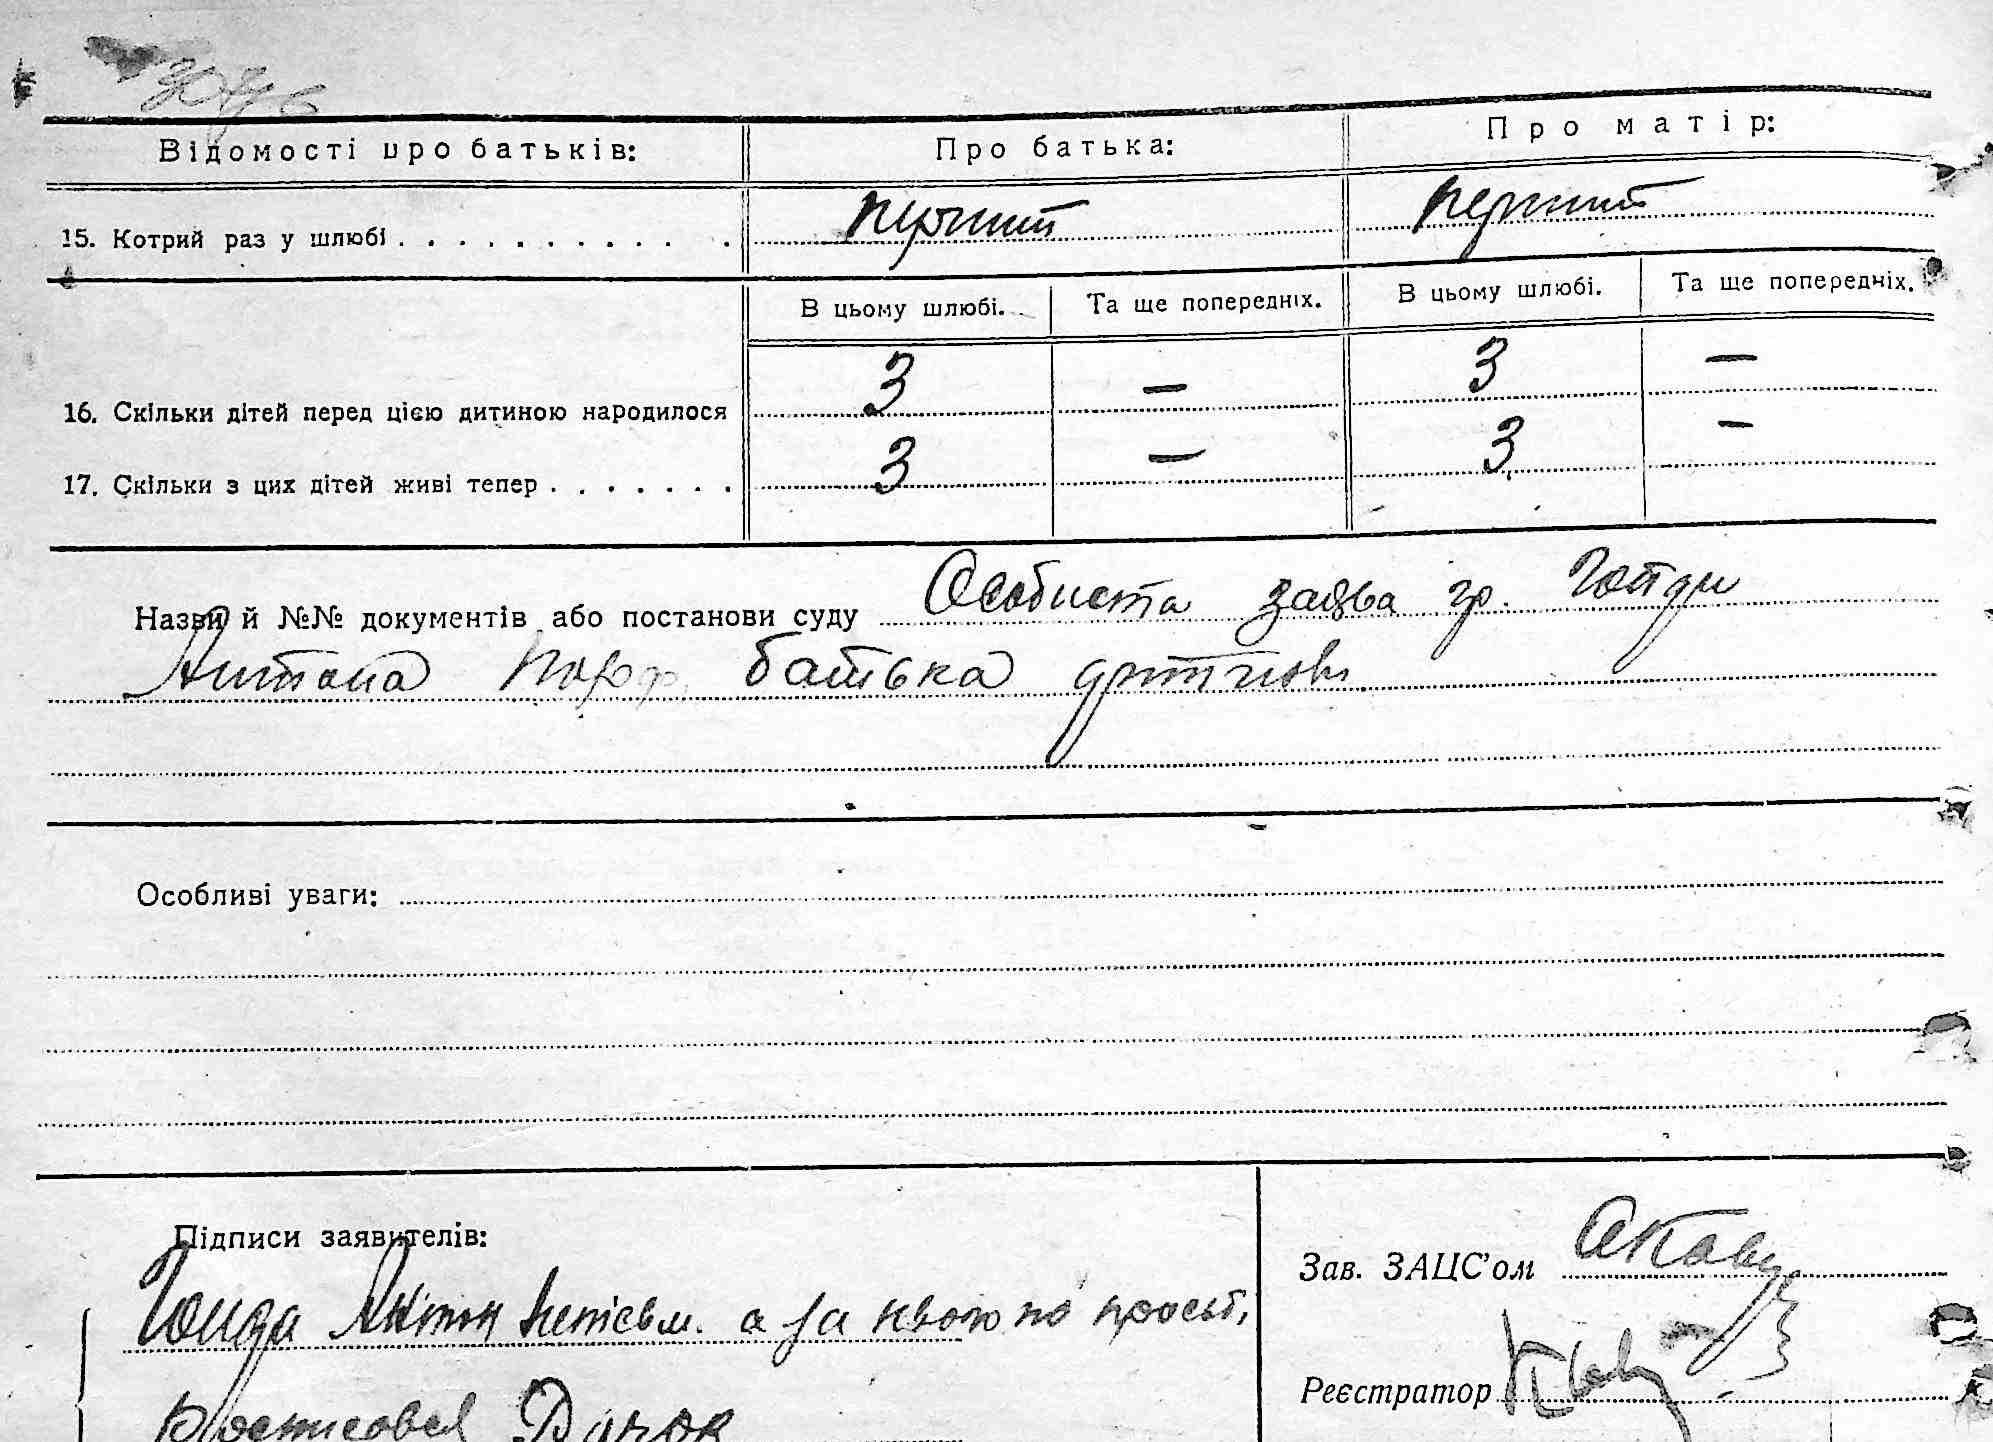 Відомості про батьків: Про батька: Про матір:
15. Котрий раз у шлюбі перший перший
В цьому шлюбі. Та ще попередніх. В цьому шлюбі. Та ще попередніх.
16. Скільки дітей перед цією дитиною народилося 3 — 3 —
17. Скільки з цих дітей живі тепер 3 — 3 —
Назви й №№ документів або постанови суду Особиста заява гр. Гойди
Антона Парф. батька дитини
Особливі уваги:
Підписи заявителів:
Гойда Антон неписьм. а за нього по прозьбі,
Зав. ЗАЦС'ом
Реєстратор